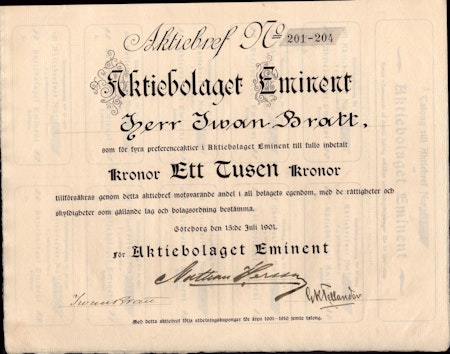 Aktiebref No 201-204
Aktiebolaget Eminent
Herr Iwan Bratt,
som för fyra preferenceaktier i Aktiebolaget Eminent till fullo inbetalt
Kronor Ett Tusen Kronor
tillförsäkras genom detta aktiebref motsvarande andel i all bolagets egendom, med de rättigheter och
skyldigheter som gällande lag och bolagsordning bestämma.
Göteborg den 15:de Juli 1901.
För Aktiebolaget Eminent
Med detta aktiebref följa utdelningskuponger för åren 1901-1910 jemte talong.